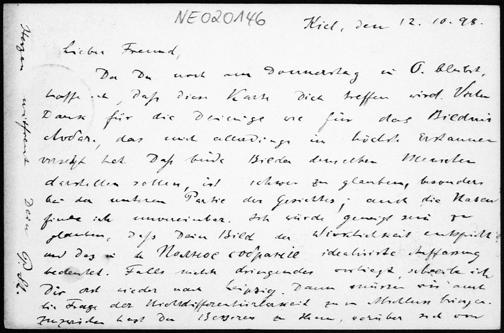 NEO20146
Kiel, den 12.10.98.
Lieber Freund,
Da Du noch am Donnerstag in O. bleibst,
hoffe ich, daß diese Karte Dich treffen wird. Vielen
Dank für die Deinige wie für das Bildnis
das mich allerdings in höchstes Erstaunen
versetzt hat. Daß beide Bilder denselben Menschen
darstellen sollen, ist schwer zu glauben, besonders
bei der unteren Partie des Gesichtes; auch die Nasen
finde ich unvereinbar. Ich würde geneigt sein zu
glauben, daß Dein Bild der Wirklichkeit entspricht
und das in idealisirte Auffassung
bedeutet. Falls nichts dringendes vorliegt, schreibe ich
Dir erst wieder nach Leipzig. Dann müssen wir auch
die Frage der zum Abschluss bringen.
hast Du Besseres zu thun, worüber sich von
Herzen mitfreut Dein